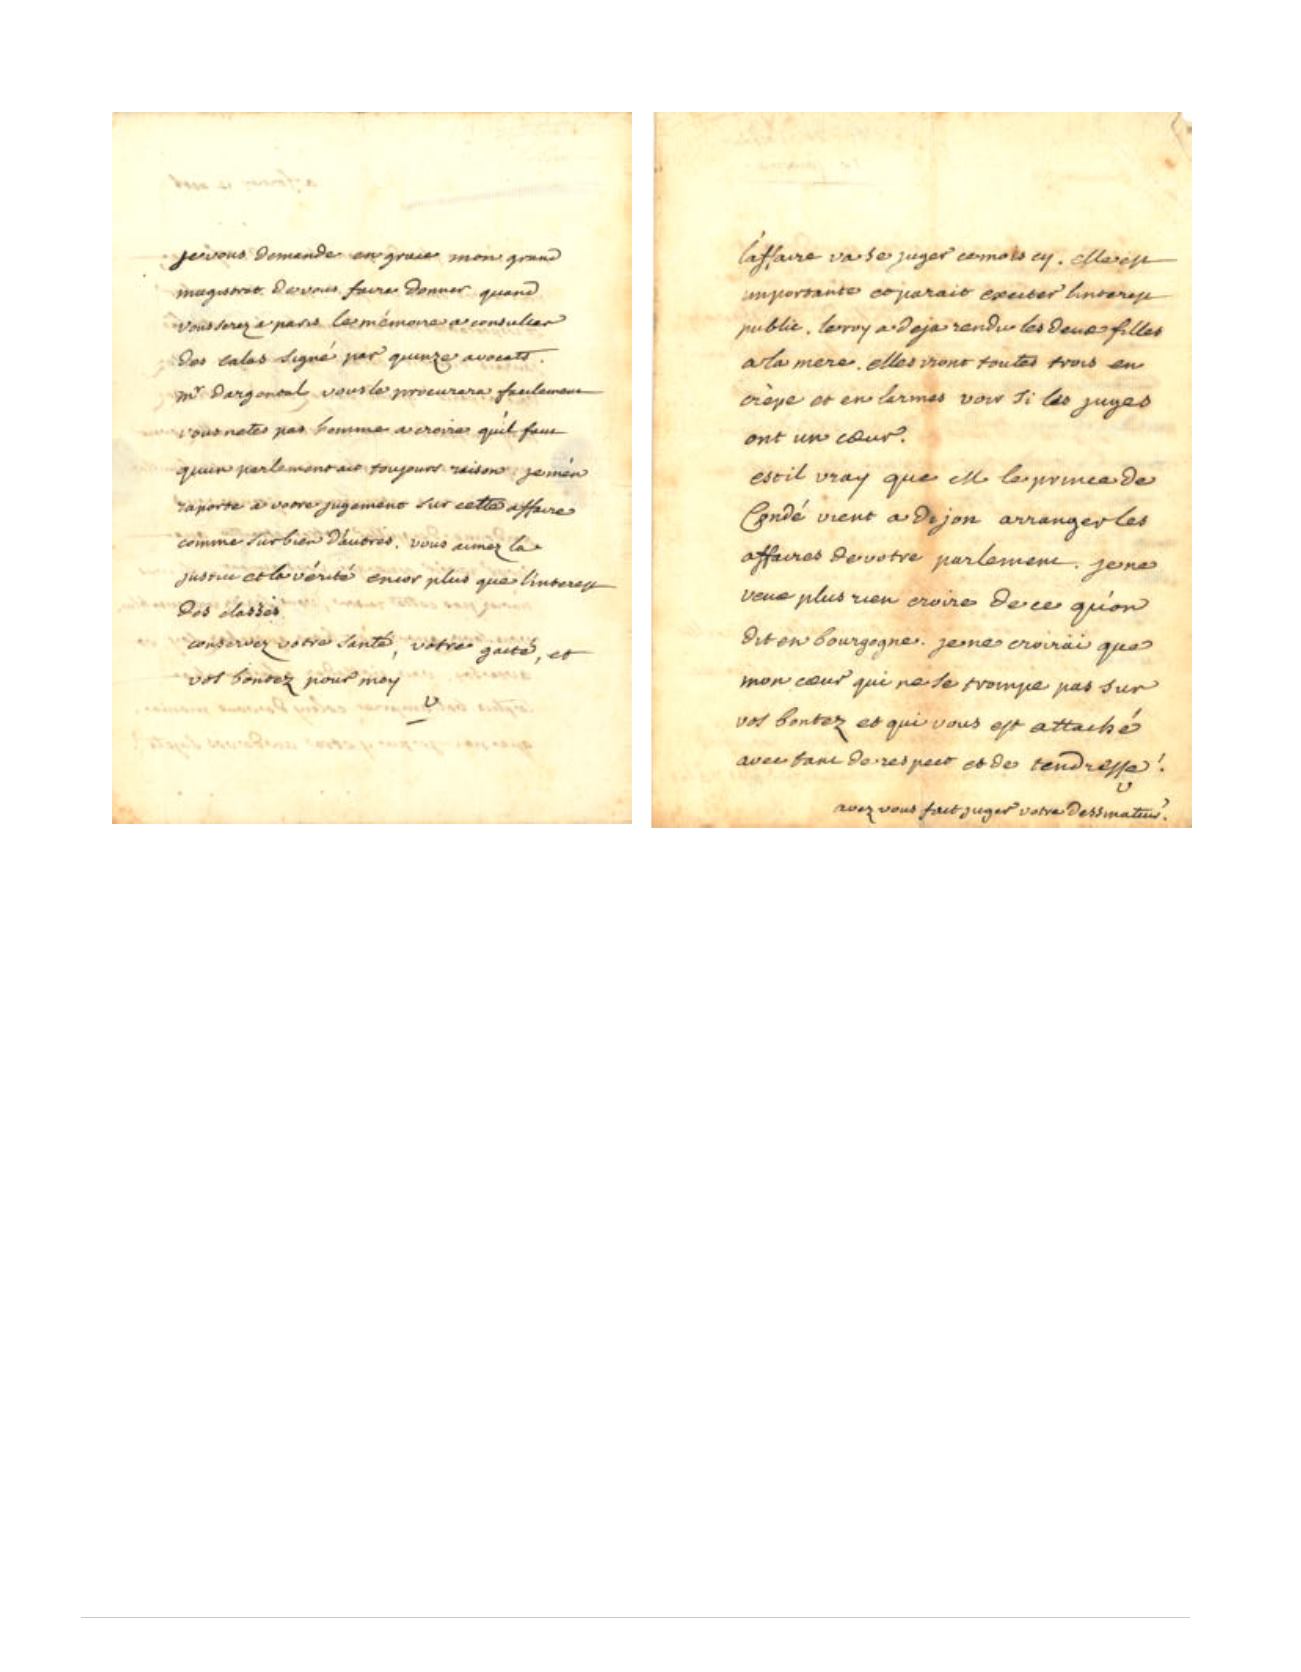 je vous demande en grace mon grand
magistrat de vous faire donner quand
vous serez a paris le mémoire a consulter
des calas signé par quinze avocats.
mr dargental vous le procurera facilement
vous netes pas homme a croire qu'il faut
quun parlement ait toujours raison. je m'en
raporte a votre jugement sur cette affaire
comme sur bien d'autres. vous aimez la
justice et la vérité encor plus que l'interest
des classes
conservez votre santé, votre gaité, et
vos bontez pour moy
V
l'affaire va se juger ce mois cy. elle est
importante et parait exciter l'interest
public. le roy a deja rendu les deux filles
a la mere. elles iront toutes trois en
crèpe et en larmes voir si les juges
ont un cœur.
est il vray que M le prince de
Condé vient a dijon arranger les
affaires de votre parlement. je ne
veux plus rien croire de ce qu'on
dit en bourgogne. je ne croirai que
mon cœur qui ne se trompe pas sur
vos bontez et qui vous est attaché
avec tant de respect et de tendresse!
V
avez vous fait juger votre dessinateur?